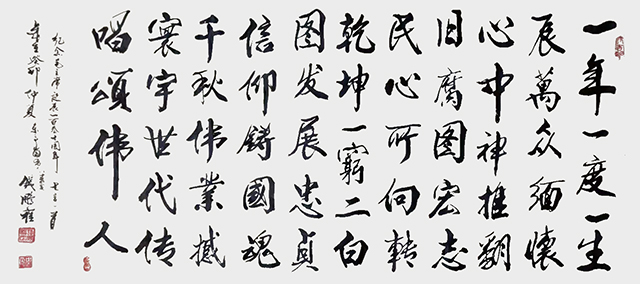 一年一度一生
辰萬众缅懷
心中神推翻
旧腐图宏志
民心所向轉
乾坤一窮二白
图发展忠貞
信仰鑄國魂
千秋伟業撼
寰宇世代传
唱頌伟人
纪念毛主席诞辰一百三十周年
癸卯仲夏